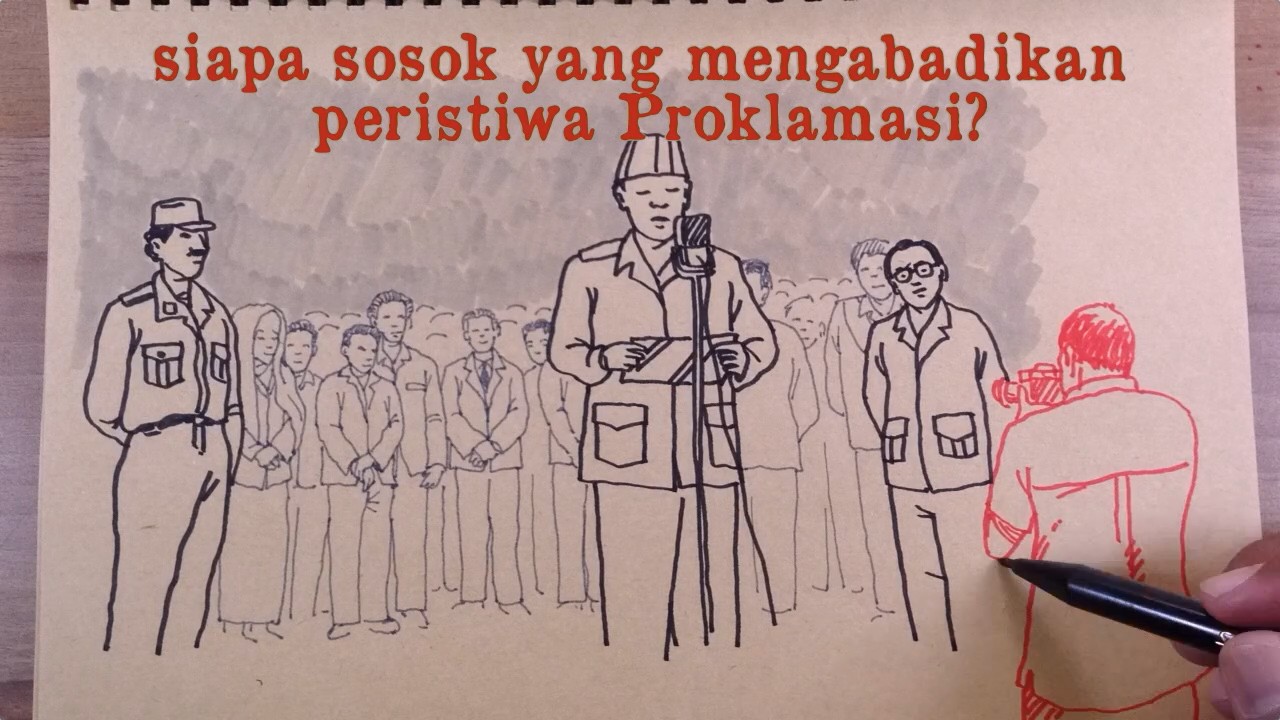 siapa sosok yang mengabadikan
peristiwa Proklamasi?